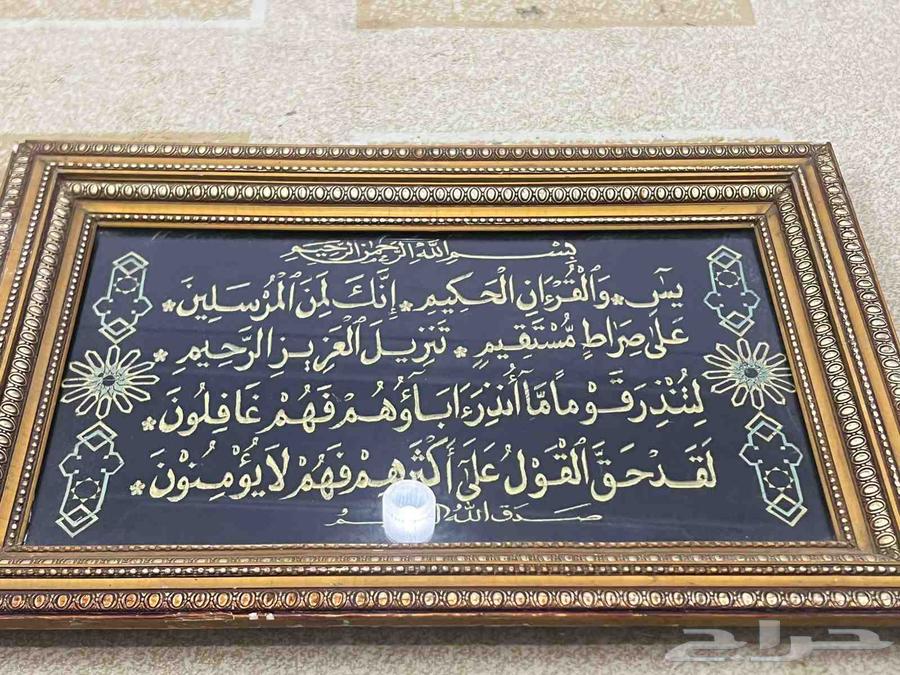 بِسْمِ اللهِ الرَّحْمَٰنِ الرَّحِيمِ
يسٓ * وَالْقُرْءَانِ الْحَكِيمِ * إِنَّكَ لَمِنَ الْمُرْسَلِينَ *
عَلَىٰ صِرَاطٍ مُّسْتَقِيمٍ * تَنزِيلَ الْعَزِيزِ الرَّحِيمِ *
لِتُنْذِرَ قَوْمًا مَّا أُنذِرَ ءَابَاؤُهُمْ فَهُمْ غَافِلُونَ *
لَقَدْ حَقَّ الْقَوْلُ عَلَىٰ أَكْثَرِهِمْ فَهُمْ لَا يُؤْمِنُونَ *
صَدَقَ اللهُ
حراج